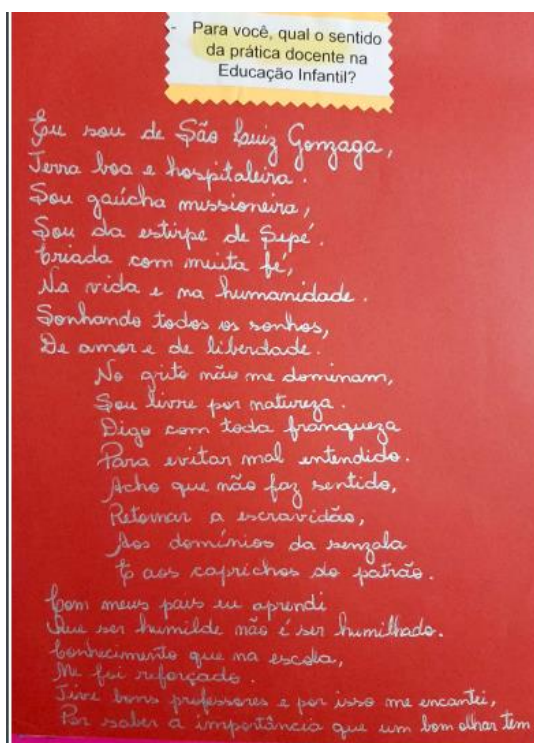 - Para você, qual o sentido
da prática docente na
Educação Infantil?
Eu sou de São Luiz Gonzaga,
Terra boa e hospitaleira.
Sou gaúcha missioneira,
Sou da estirpe de Sepé.
Criada com muita fé,
Na vida e na humanidade.
Sonhando todos os sonhos,
De amor e de liberdade.
No grito não me dominam,
Sou livre por natureza.
Digo com toda franqueza
Para evitar mal entendido.
Acho que não faz sentido,
Retornar a escravidão,
Aos domínios da senzala
E aos caprichos do patrão.
Com meus pais eu aprendi
Que ser humilde não é ser humilhado.
Conhecimento que na escola,
Me foi reforçado.
Tive bons professores e por isso me encantei,
Por saber a importância que um bom olhar tem